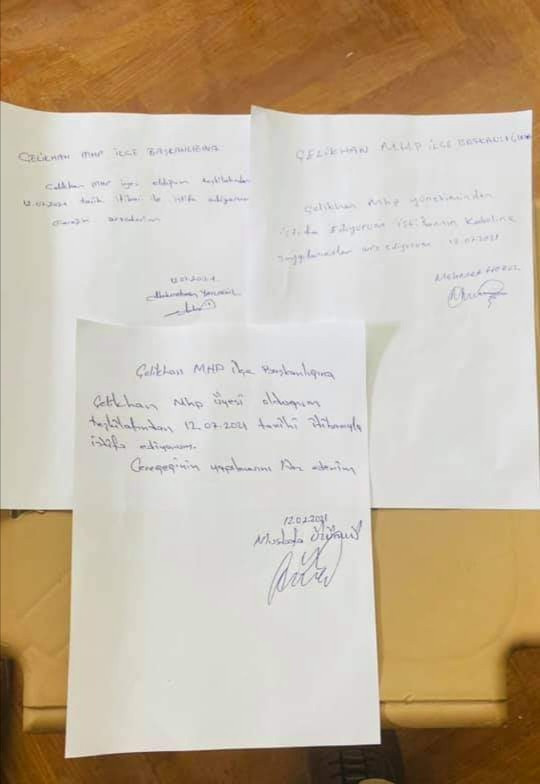 ÇELİKHAN MHP İLÇE BAŞKANLIĞINA
Çelikhan MHP üyesi olduğum teşkilatından
12.07.2021 tarih itibari ile istifa ediyorum
12.07.2021
ÇELİKHAN MHP İLÇE BAŞKANLIĞINA
Çelikhan Mhp yönetiminden
istifa Ediyorum istifamın Kabulünü
arz ediyorum 12.07.2021
MEHMET
Çelikhan MHP ilçe Başkanlığına
Çelikhan Mhp üyesi olduğum
teşkilatından 12.07.2021 tarihi itibarıyla
istifa ediyorum.
Gereğinin yapılmasını Arz ederim
12.07.2021
Mustafa